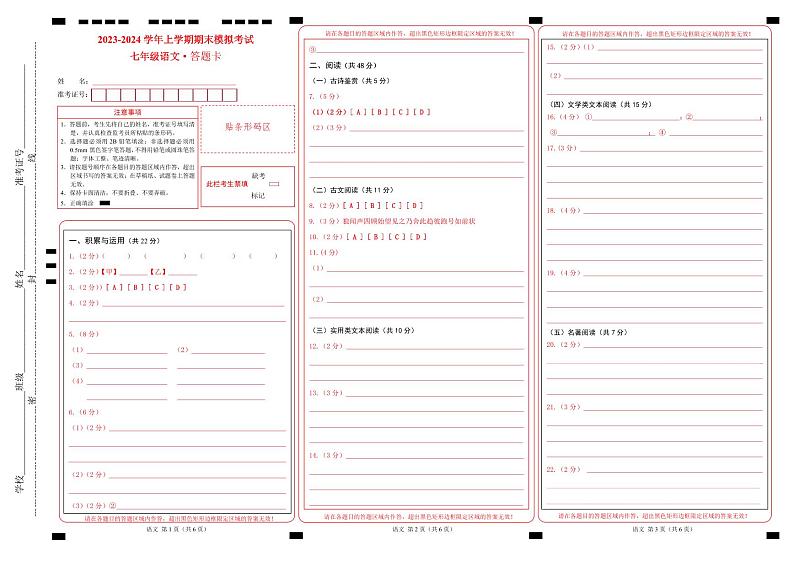 学校
班级
姓名
准考证号
密
封
线
2023-2024 学年上学期期末模拟考试
七年级语文·答题卡
姓 名：
准考证号：
注意事项
1．答题前，考生先将自己的姓名，准考证号填写清
楚，并认真检查监考员所粘贴的条形码。
2．选择题必须用 2B 铅笔填涂；非选择题必须用
0.5mm 黑色签字笔答题，不得用铅笔或圆珠笔答
题；字体工整、笔迹清晰。
3．请按题号顺序在各题目的答题区域内作答，超出
区域书写的答案无效；在草稿纸、试题卷上答题
无效。
4．保持卡面清洁，不要折叠、不要弄破。
5．正确填涂
贴条形码区
此栏考生禁填
缺考
标记
一、积累与运用（共 22 分）
1.（2 分）（ ） （ ） （ ） （ ）
2.（2 分）【甲】 【乙】
3.（2 分）[ A ] [ B ] [ C ] [ D ]
4.（2 分）
5.（8 分）
（1） （2）
（3）
（4）
6.（6 分）
（1）（2 分）
（2）（2 分）
（3）（2 分）②
请在各题目的答题区域内作答，超出黑色矩形边框限定区域的答案无效！
语文 第 1 页（共 6 页）
请在各题目的答题区域内作答，超出黑色矩形边框限定区域的答案无效！
③
二、阅读（共 48 分）
（一）古诗鉴赏（共 5 分）
7.（5 分）
（1）（2 分）[ A ] [ B ] [ C ] [ D ]
（2）（3 分）
（二）古文阅读（共 11 分）
8.（2 分）[ A ] [ B ] [ C ] [ D ]
9.（3 分）狼闻声四顾始望见之乃舍此趋彼跑号如前状
10.（2 分）[ A ] [ B ] [ C ] [ D ]
11.(4 分)
（1）
（2）
（三）实用类文本阅读（共 10 分）
12.（2 分）
13.（3 分）
14.（3 分）
请在各题目的答题区域内作答，超出黑色矩形边框限定区域的答案无效！
语文 第 2 页（共 6 页）
请在各题目的答题区域内作答，超出黑色矩形边框限定区域的答案无效！
15.（2 分）（1）
（2）
（四）文学类文本阅读（共 15 分）
16.（4 分） ① ；②
③ ； ④
17.（3 分）
18.（4 分）
19.（4 分）
（五）名著阅读（共 7 分）
20.（2 分）
21.（3 分）
22.（2 分）
请在各题目的答题区域内作答，超出黑色矩形边框限定区域的答案无效！
语文 第 3 页（共 6 页）